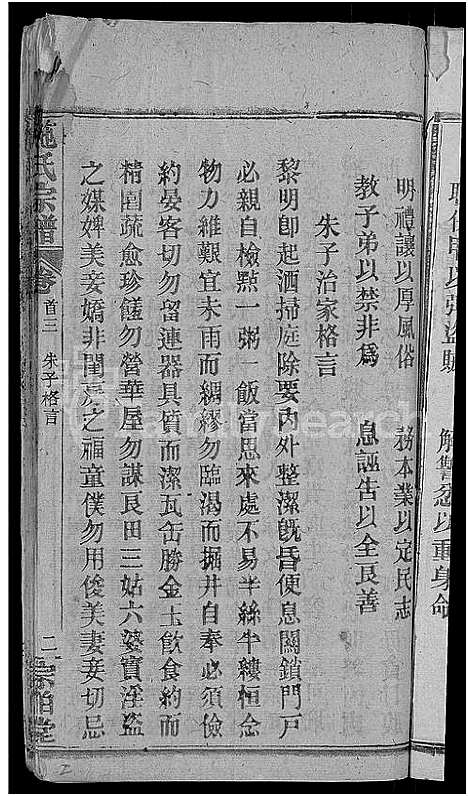 聯保甲以弭盜賊
解讐忿以重身命
明禮讓以厚風俗
務本業以定民志
教子弟以禁非爲
息誣告以全良善
朱子治家格言
黎明卽起洒掃庭除要內外整潔旣昏便息關鎖門戶
必親自檢點一粥一飯當思來處不易半絲半縷恒念
物力維艱宜未雨而綢繆勿臨渴而掘井自奉必須儉
約晏客切勿留連器具質而潔瓦缶勝金玉飮食約而
精園蔬愈珍饈勿營華屋勿謀良田三姑六婆實淫盜
之媒婢美妾嬌非閨房之福童僕勿用俊美妻妾切忌
施氏宗譜
卷首三
朱子格言
二